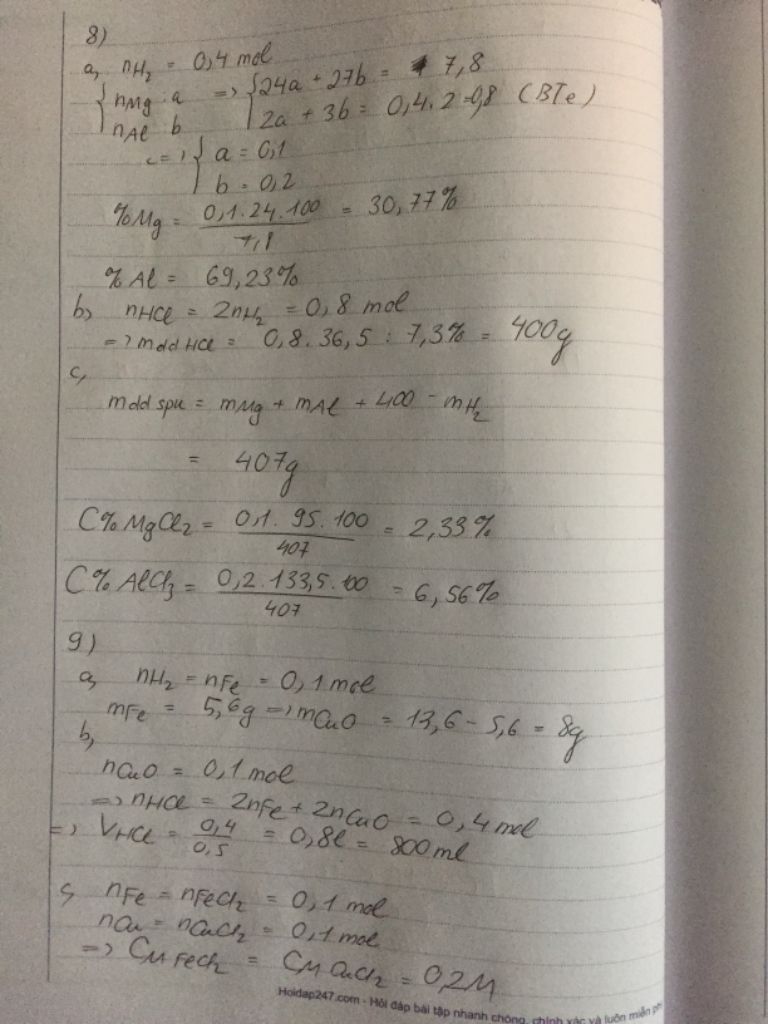 8)
a, nH2 = 0,4 mol
{ nMg : a => { 24a + 27b = 7,8
nAl : b 2a + 3b = 0,4.2=0,8 (BTe)
<=> { a = 0,1
b = 0,2
%Mg = 0,1.24.100 / 7,8 = 30,77%
% Al = 69,23%
b, nHCl = 2nH2 = 0,8 mol
=> mdd HCl = 0,8.36,5 : 7,3% = 400g
c,
mdd spu = mMg + mAl + 400 - mH2
= 407g
C% MgCl2 = 0,1.95.100 / 407 = 2,33%
C% AlCl3 = 0,2.133,5.100 / 407 = 6,56%
9)
a, nH2 = nFe = 0,1 mol
mFe = 5,6g => mCuO = 13,6 - 5,6 = 8g
b,
nCuO = 0,1 mol
=> nHCl = 2nFe + 2nCuO = 0,4 mol
=> VHCl = 0,4 / 0,5 = 0,8l = 800ml
c, nFe = nFeCl2 = 0,1 mol
nCu = nCuCl2 = 0,1 mol
=> CM FeCl2 = CM CuCl2 = 0,2M
Hoidap247.com - Hỏi đáp bài tập nhanh chóng, chính xác và luôn miễn phí